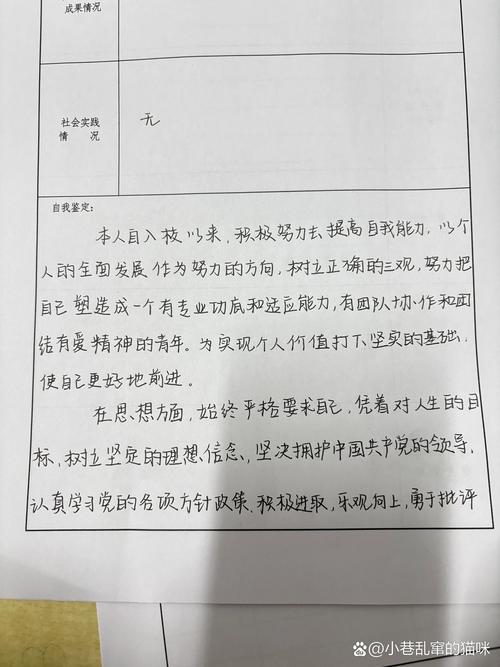 成果情况
社会实践
情 况
无
自我鉴定：
本人自入校以来，积极努力去提高自我能力，以个
人的全面发展作为努力的方向，树立正确的三观，努力把
自己塑造成一个有专业功底和适应能力，有团队协作和团
结有爱精神的青年。为实现个人价值打下坚实的基础，
使自己更好地前进。
在思想方面，始终严格要求自己，凭着对人生的目
标，树立坚定的理想、信念、坚决拥护中国共产党的领导、
认真学习党的各项方针政策、积极进取，乐观向上，勇于批评
百度 @小巷乱窜的猫咪